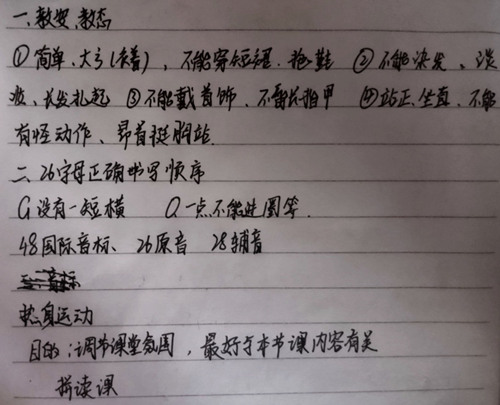 一、教姿、教态
①简单、大方(衣着),不能穿短裙、拖鞋 ②不能染发、淡
妆、长发扎起 ③不能戴首饰、不留长指甲 ④站正、坐直、不能
有怪动作、昂首挺胸站.
二、26字母正确书写顺序
G没有一短横 Q一点不能进圆笔.
48国际音标、26原音 28辅音
热身运动
目的:调节课堂氛围,最好与本节课内容有关
拼读课